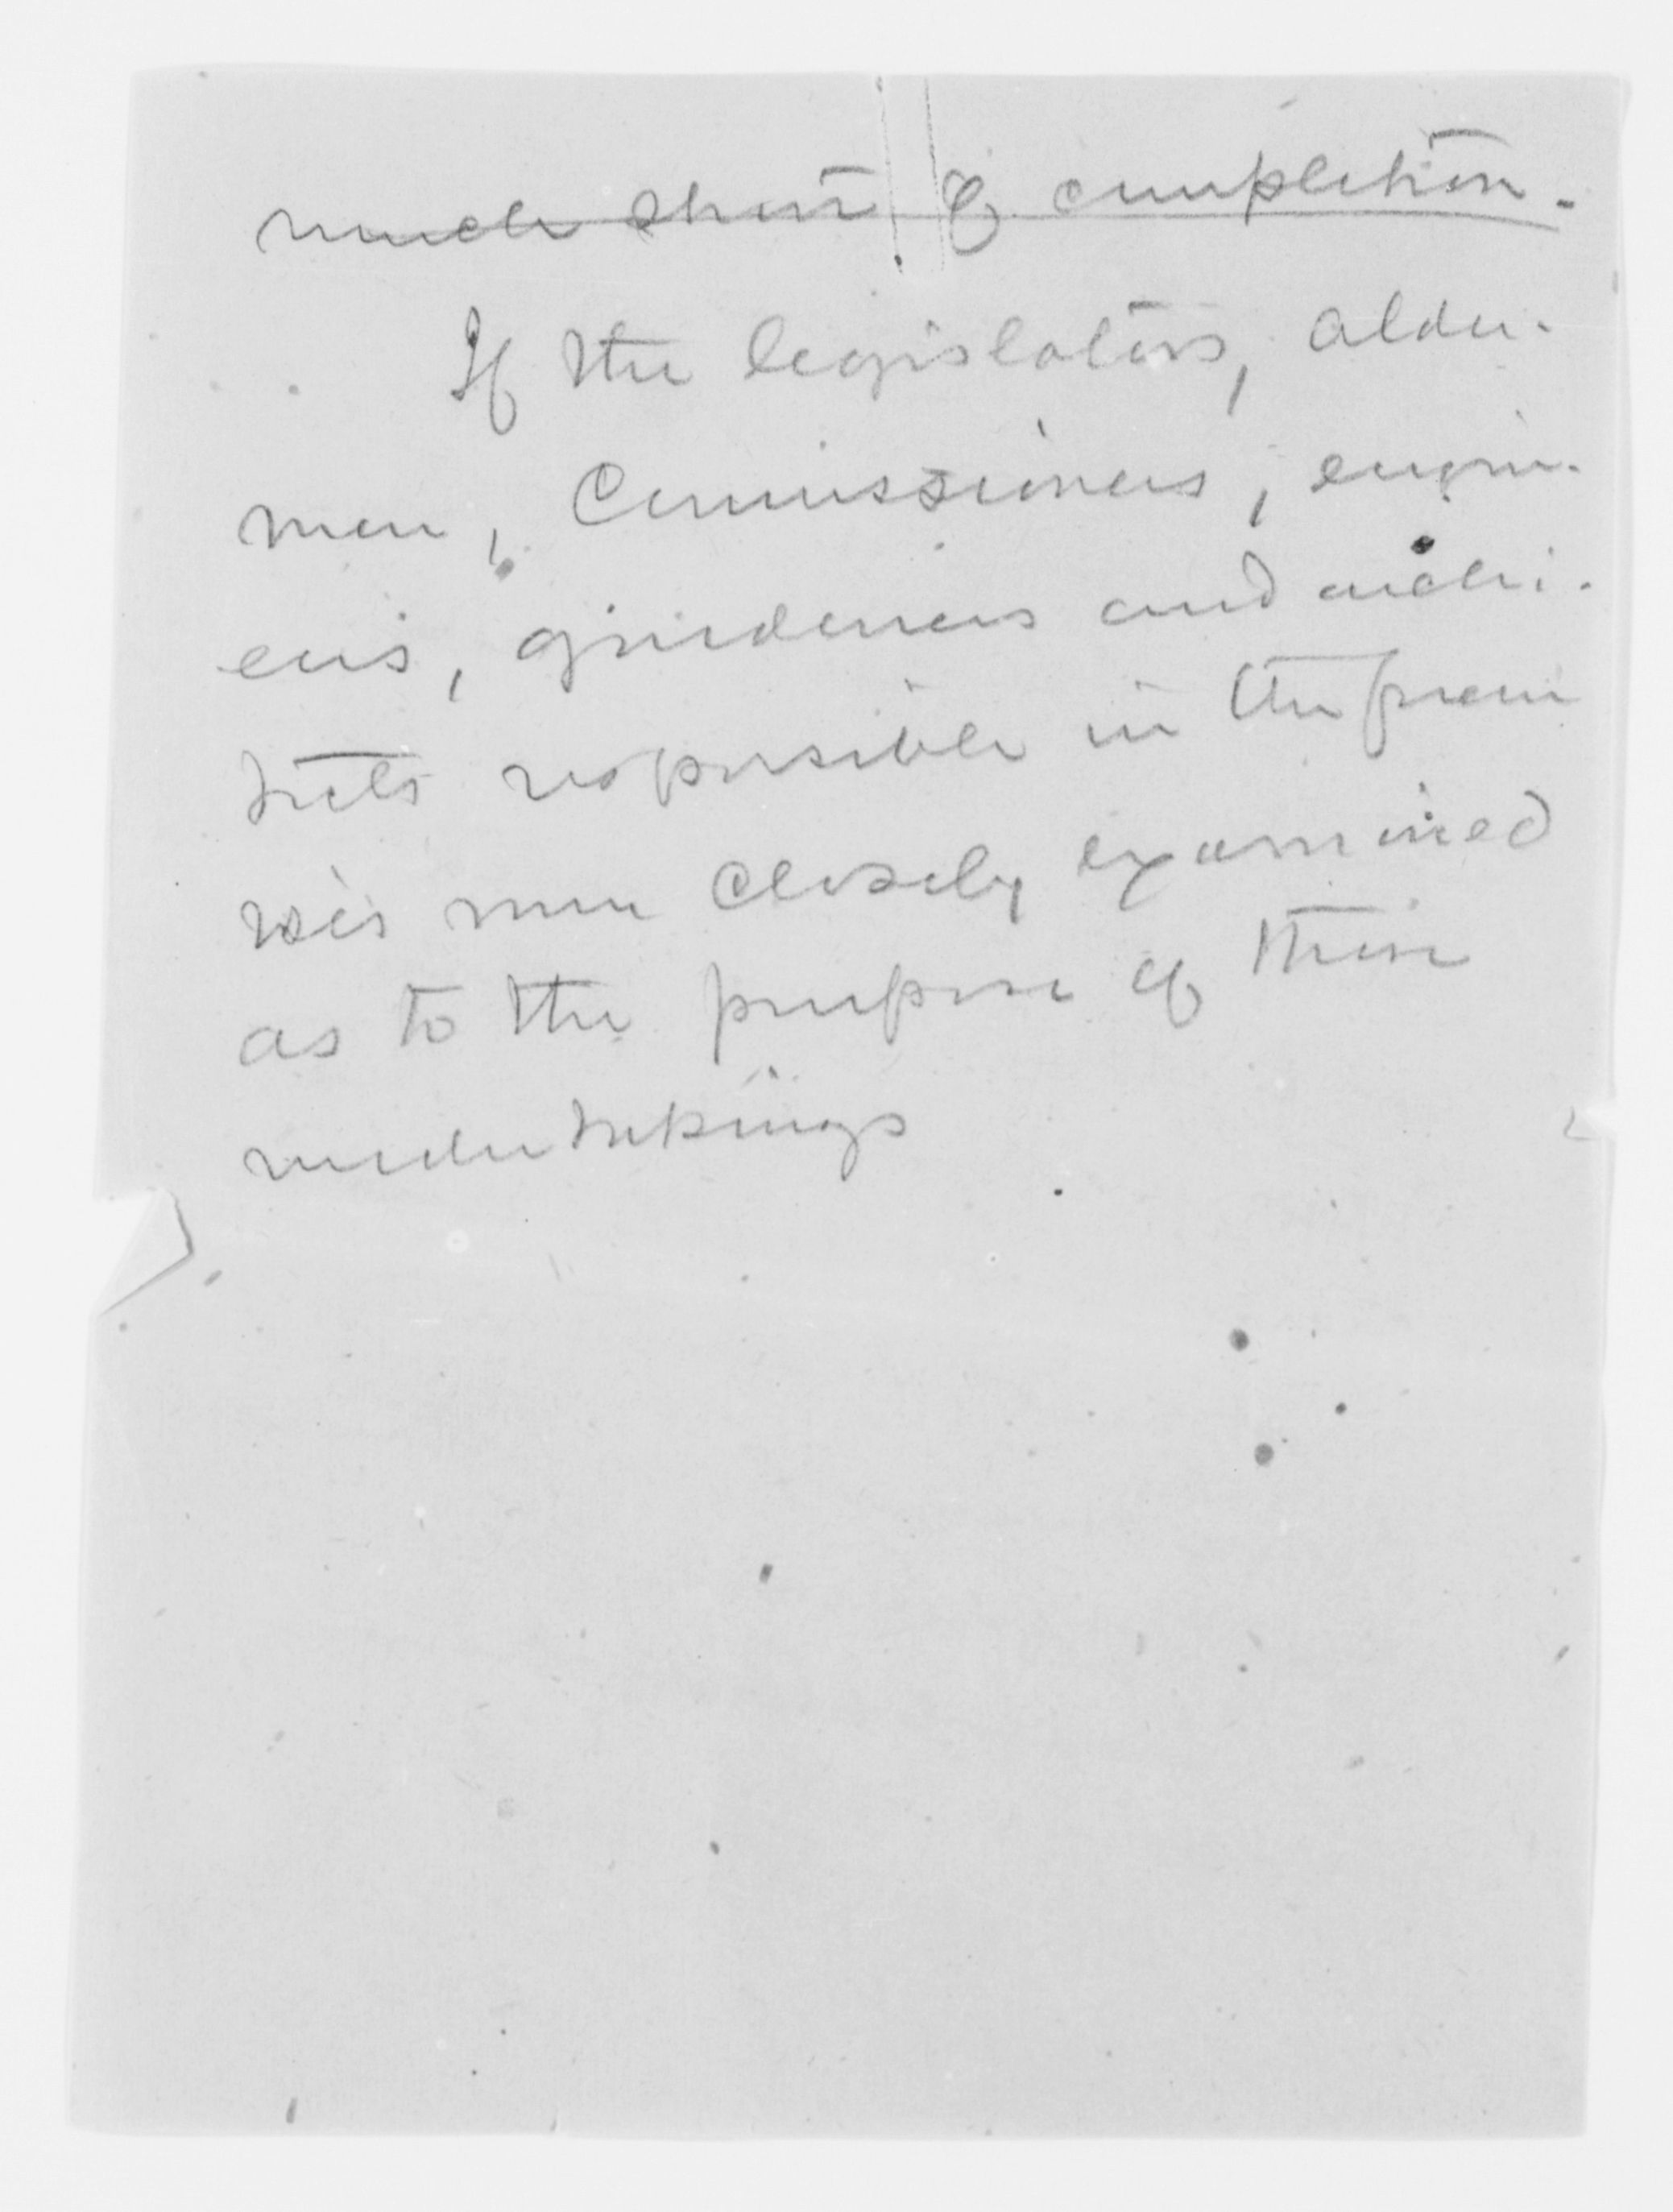 much short of completion.
If the legislators, alder-
men, Commissioners, engin-
eers, gardeners and archi-
tects responsible in the prem
ises were closely examined
as to the purpose of their
undertakings